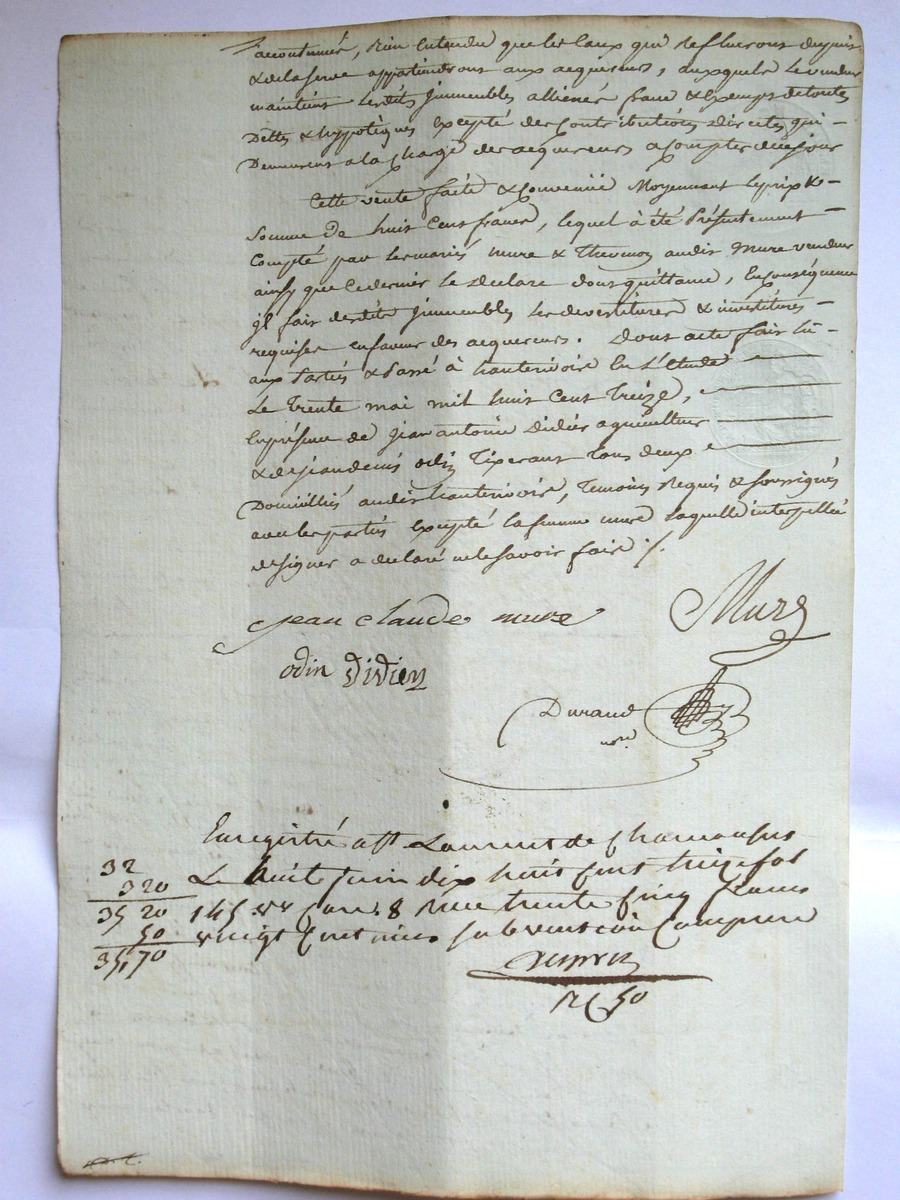 accoutumés, Bien Entendu que les Eaux qui deflueront depuis
& de la serve appartiendront aux acquereurs, auxquels le vendeur
maintient lesdits jmmeubles alliénés franc & Exempt de toutes
Dettes & hypotèques Excepté des Contributions Directes qui -
Demeurent a la Charge des acquereurs a compter de ce jour
Cette vente faite & Convenüe Moyennant le prix &-
Somme De huit Cent francs, lequel à été Présentement -
Compté par les mariés mure & audit Mure vendeur
ainsy que ce dernier le Déclare dont quittance, En conséquence
jl fait desdits jmmeubles les devestitures & investitures -
requises en faveur des acquereurs. Dont acte fait Lu -
aux Parties & Passé à hauterivoire En L'étude
Le Trente mai mil huit Cent Treize,
En présence de Jean antoine Didier agriculteur
& de Jean denis odin Tixerant tous deux
Domicilliés audit hauterivoire, Témoins Requis & soussignés
avec les parties Excepté la femme mure laquelle interpellée
de signer a déclaré ne le savoir faire ./.
jean claude mure Mure
odin didier
Durand
nore
Enregistré a St Laurent de Chamousset
Le huit juin dix huit Cent treize fol
145 Case 8 Recu trente Cinq francs
vingt Centimes subvention Comprise
32
3 20
35 20
50
35,70